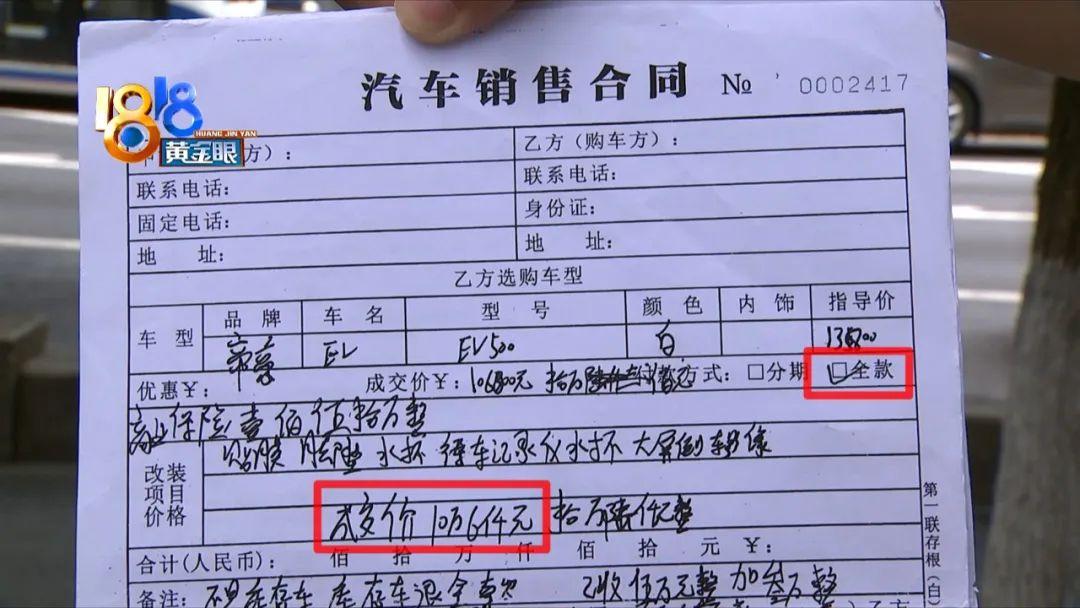 汽车销售合同 № 0002417
1818
HUANG JIN YAN
黄金眼
方）： 乙方（购车方）：
联系电话： 联系电话：
固定电话： 身份证：
地 址： 地 址：
乙方选购车型
车 型 品 牌 车 名 型 号 颜 色 内 饰 指导价
EV EV500 白
优惠￥： 成交价￥： 方式： □分期 □全款
商业保险壹佰伍拾万整
改装项目价格
贴膜 脚垫 水杯 行车记录仪水杯 大屏倒车影像
成交价10万6仟元 拾万陆仟元整
合计(人民币)： 佰 拾 万 仟 佰 拾 元 ￥：
备注： 不是库存车 库存车退全款 已收伍万元整 加叁万整
乙方
第一联存根（白）